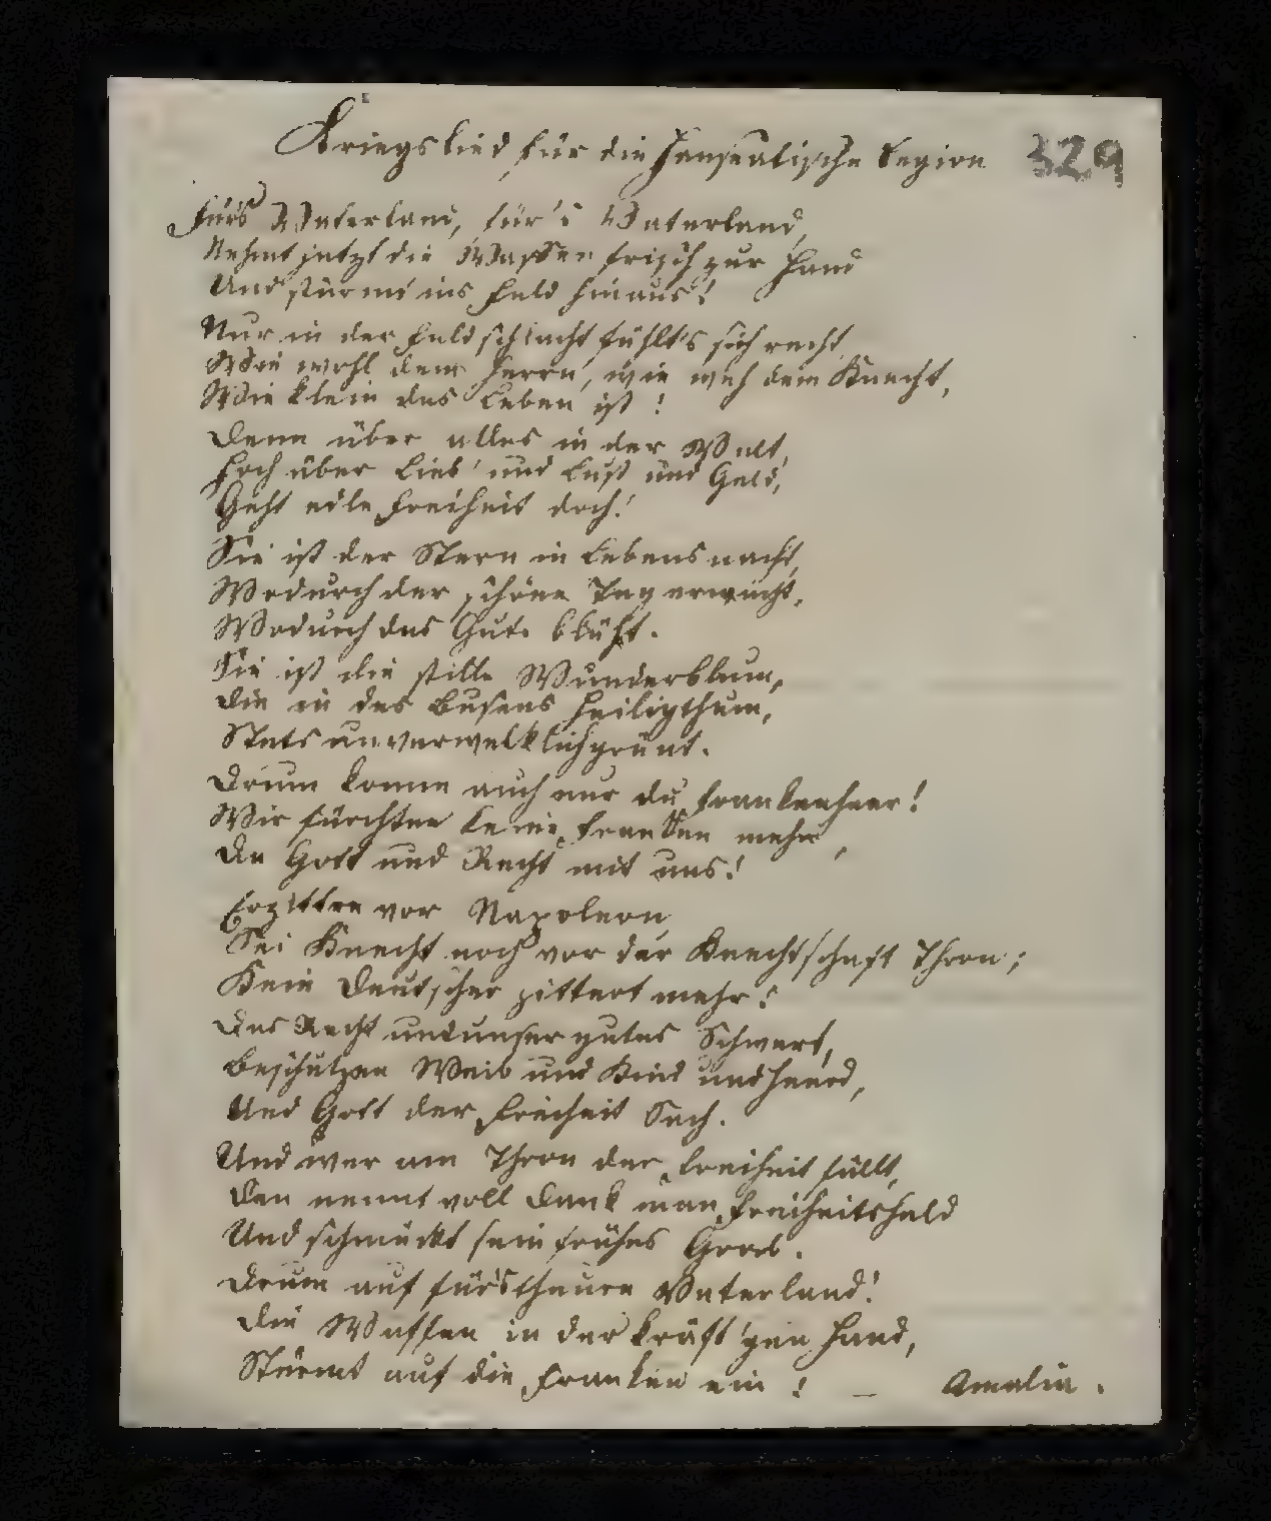 Kriegslied für die Hanseatische Legion 329
Fürs Vaterland, für's Vaterland,
Nehmt jetzt die Waffen frisch zur Hand
Und stürmt ins Feld hinaus!
Nur in der Feldschlacht fühlt's sich recht
Wie wohl dem Herrn, wie weh dem Knecht,
Wie klein das Leben ist!
Denn über alles in der Welt,
Hoch über Lieb' und Lust und Geld,
Geht edle Freiheit doch!
Sie ist der Stern in Lebensnacht,
Wodurch der schöne Tag erwacht,
Wodurch das Gute blüht.
Sie ist die stille Wunderblum,
Die in des Busens Heiligthum,
Stets unverwelklich grünt.
Drum komm auch nur du Frankenheer!
Wir fürchten keine Franken mehr,
Da Gott und Recht mit uns!
Erzittre vor Napoleon
Sei Knecht noch vor der Knechtschaft Thron;
Kein Deutscher zittert mehr!
Das Recht und unser gutes Schwert,
Beschützen Weib und Kind und Heerd,
Und Gott der Freiheit Sach.
Und wer am Thron der Freiheit fällt,
Den nennt voll Dank man Freiheitsheld
Und schmückt sein frühes Grab.
Drum auf fürs theure Vaterland!
Die Waffen in der kräft'gen Hand,
Stürmt auf die Franken ein! – Amalia.